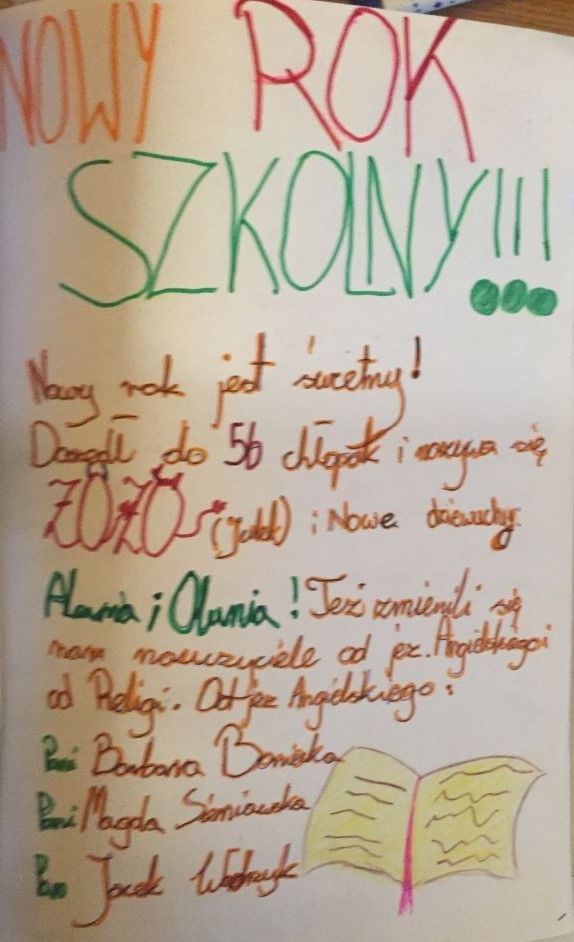 NOWY ROK
SZKOLNY!!!
Nowy rok jest świetny!
Doszedł do 5b chłopak i nazywa się
ZOZO (Julek) i Nowe dziewuchy.
Alamia i Olunia! Też zmienili się
nam nauczyciele od jęz. Angielskiego i
od Religi. Od jęz Angielskiego:
Pani Barbara
Pani Magda
Pan Jacek